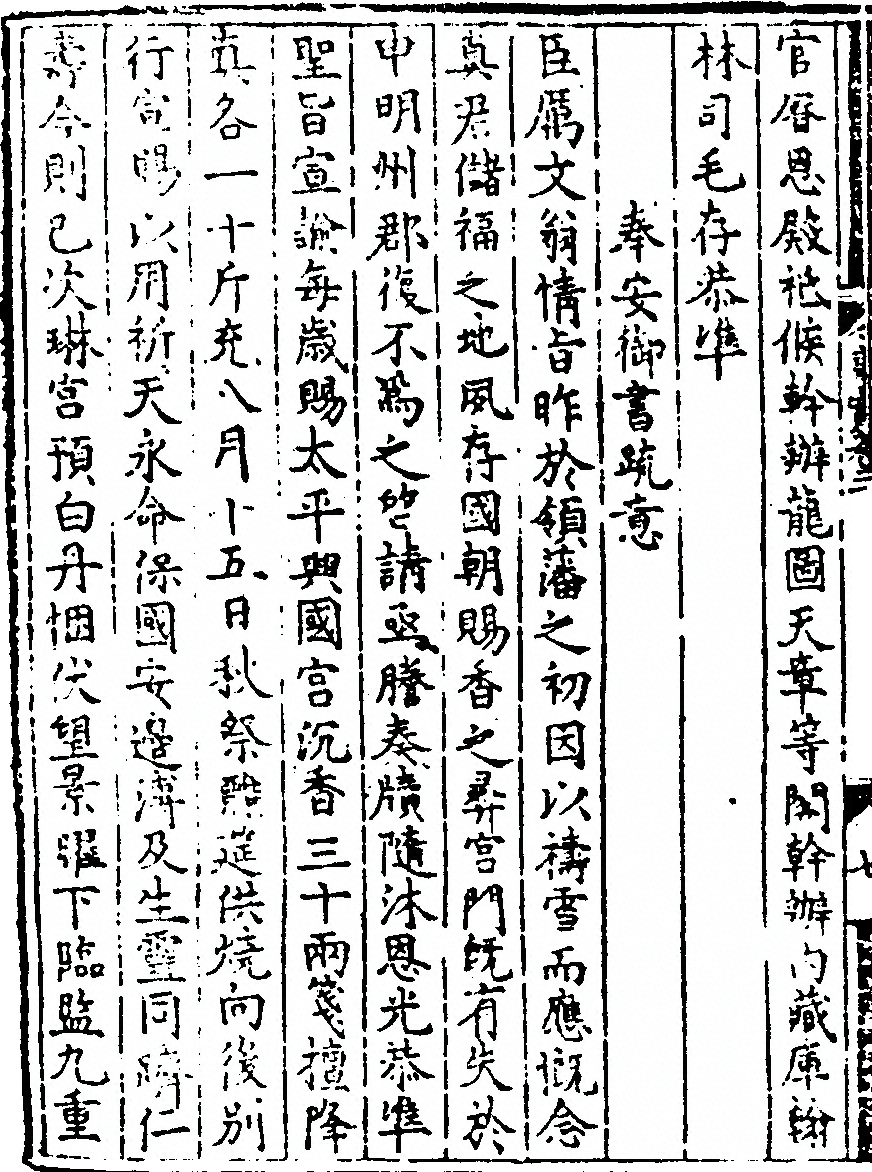 官曆恩殿祗候幹辦龍圖天章等閣幹辦内藏庫翰
林司毛存恭準
奉安御書䟽意
臣厲文翁情旨昨於領藩之初因以禱雪而應慨念
真君儲福之地夙存國朝賜香之彞宮門既有失於
申明州郡復不爲之啓請亟騰奏牘隨沐恩光恭準
聖旨宣諭每歲賜太平興國宮沉香三十兩箋檀降
真各一十斤充八月十五日秋祭點筵供燒向後別
行宣賜以用祈天永命保國安邊溥及生靈同躋仁
壽今則已次琳宮預白丹悃伏望景躔下臨監九重